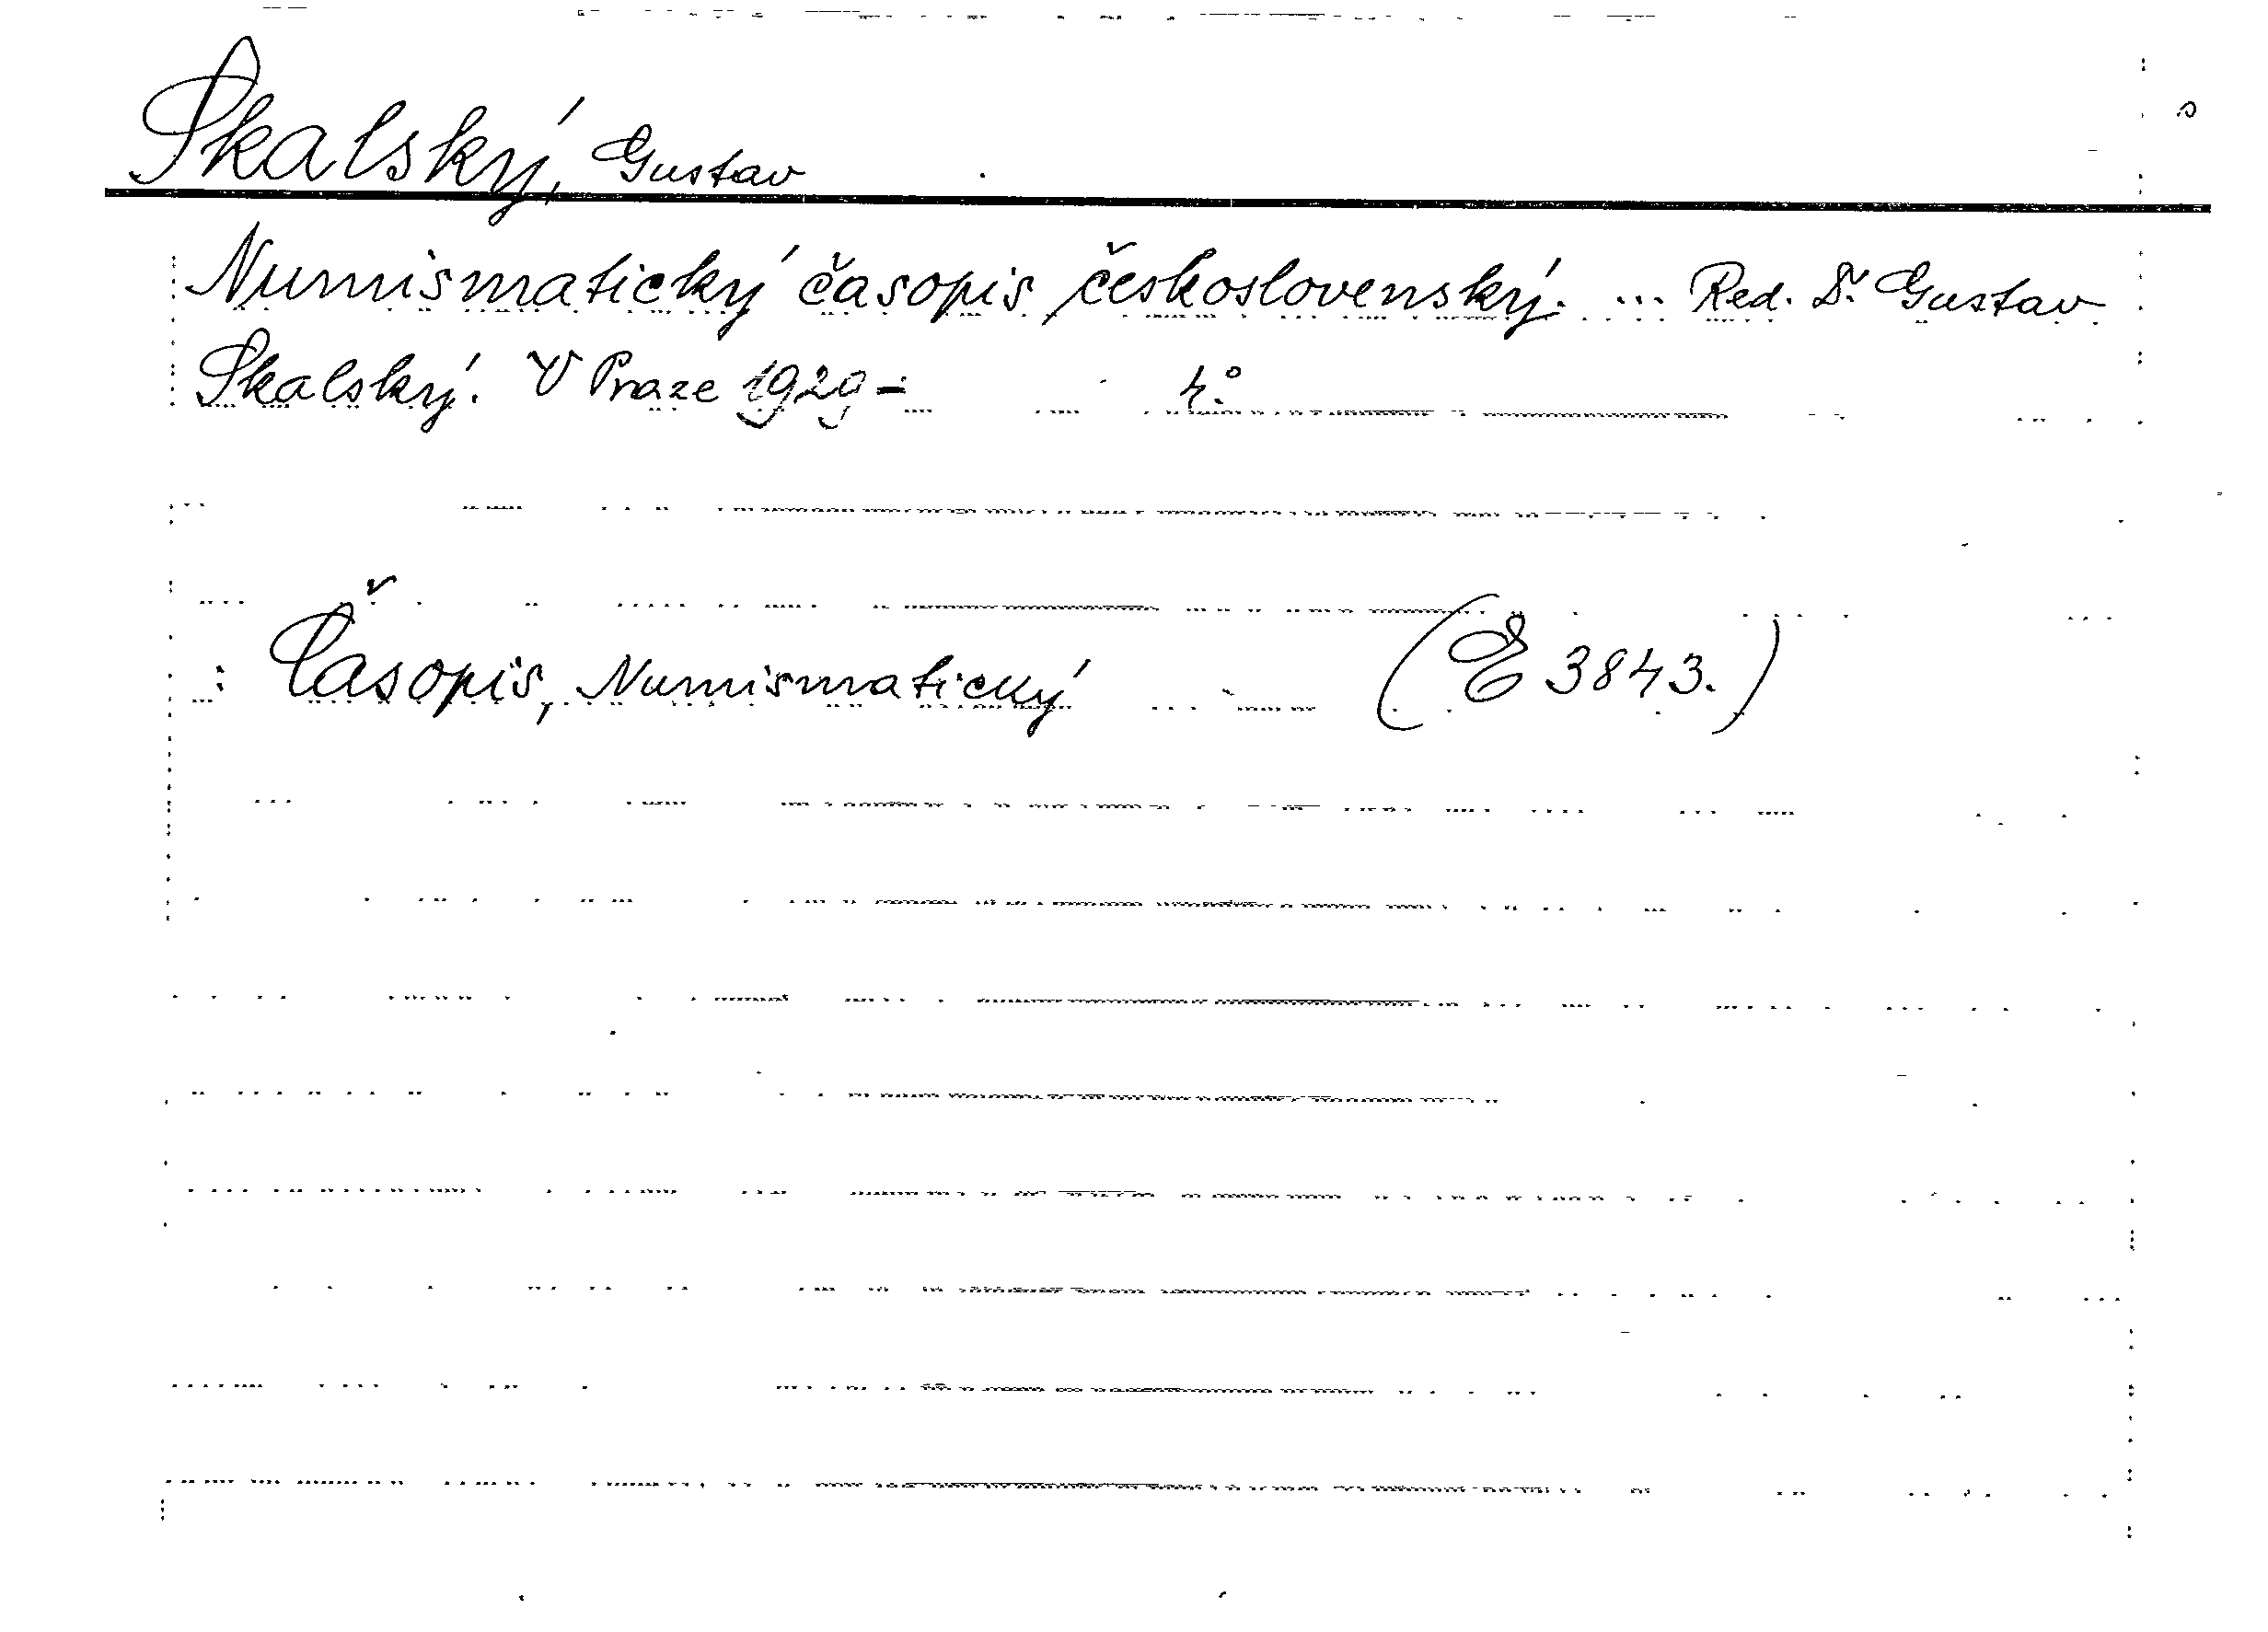 Skalský, Gustav
Numismatický časopis československý. ... Red. Dr. Gustav
Skalský. V Praze 1929- 4°.
: Časopis, Numismatický (E 3843.)